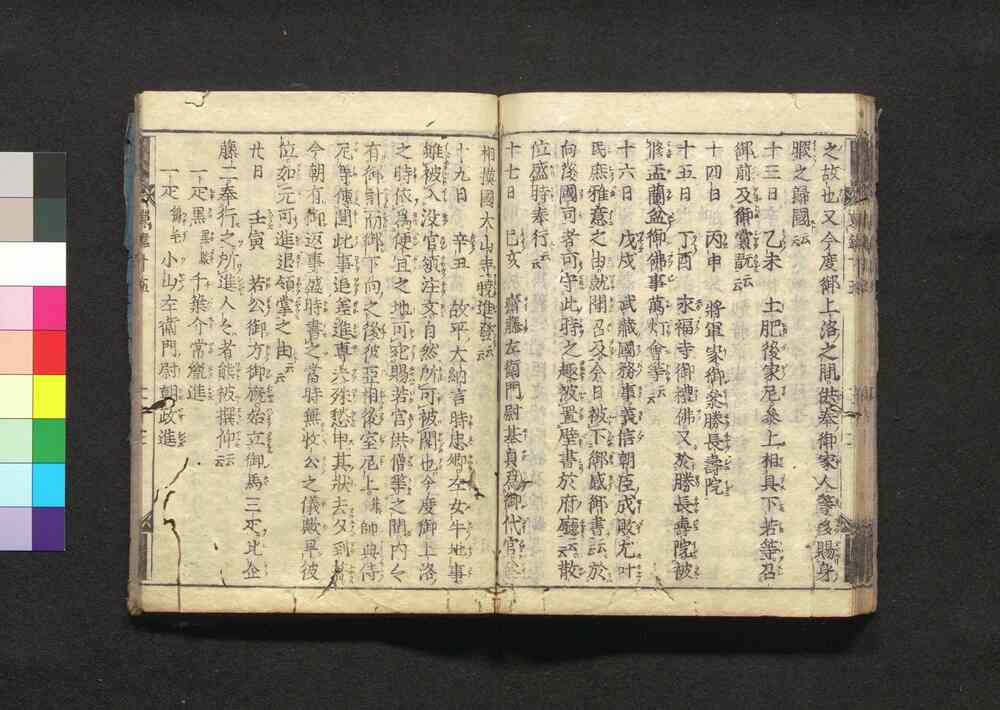 之故也又今度御上洛之間供奉御家人等多賜身
暇之歸國云云
十三日 乙未 土肥後家尼參上相具下若等召
御前及御賞翫云云
十四日 丙申 將軍家御參勝長壽院
十五日 丁酉 永福寺御禮佛又於勝長壽院被
修盂蘭盆御佛事萬灯會等云云
十六日 戊戌 武藏國務事義信朝臣成敗尤叶
民庶雅意之由就聞召及今日被下御感御書云於
向後國司者可守此時之趣被置壁書於府廳云云散
位盛時奉行云云
十七日 己亥 齋藤左衛門尉基員爲御代官
相摸國大山寺曉進發云云
十九日 辛丑 故平大納言時忠卿左女牛地事
雖被入没官領注文自然所可被閣也今度御上洛
之時依爲便宜之地可宛賜若宮供僧等之間内々
有御計而御下向之後彼亞相後室尼上帥典侍
尼等傳聞此事追差進專使殊愁申其狀去夕到
今朝有御返事盛時書之當時無收公之儀歟早彼
位如元可進退領掌之由云云
廿日 壬寅 若公御方御廐始立御馬三疋比企
藤二奉行之所進人々者能被撰仰云云
一疋黒 千葉介常胤進
一疋鴾毛 小山左衛門尉朝政進